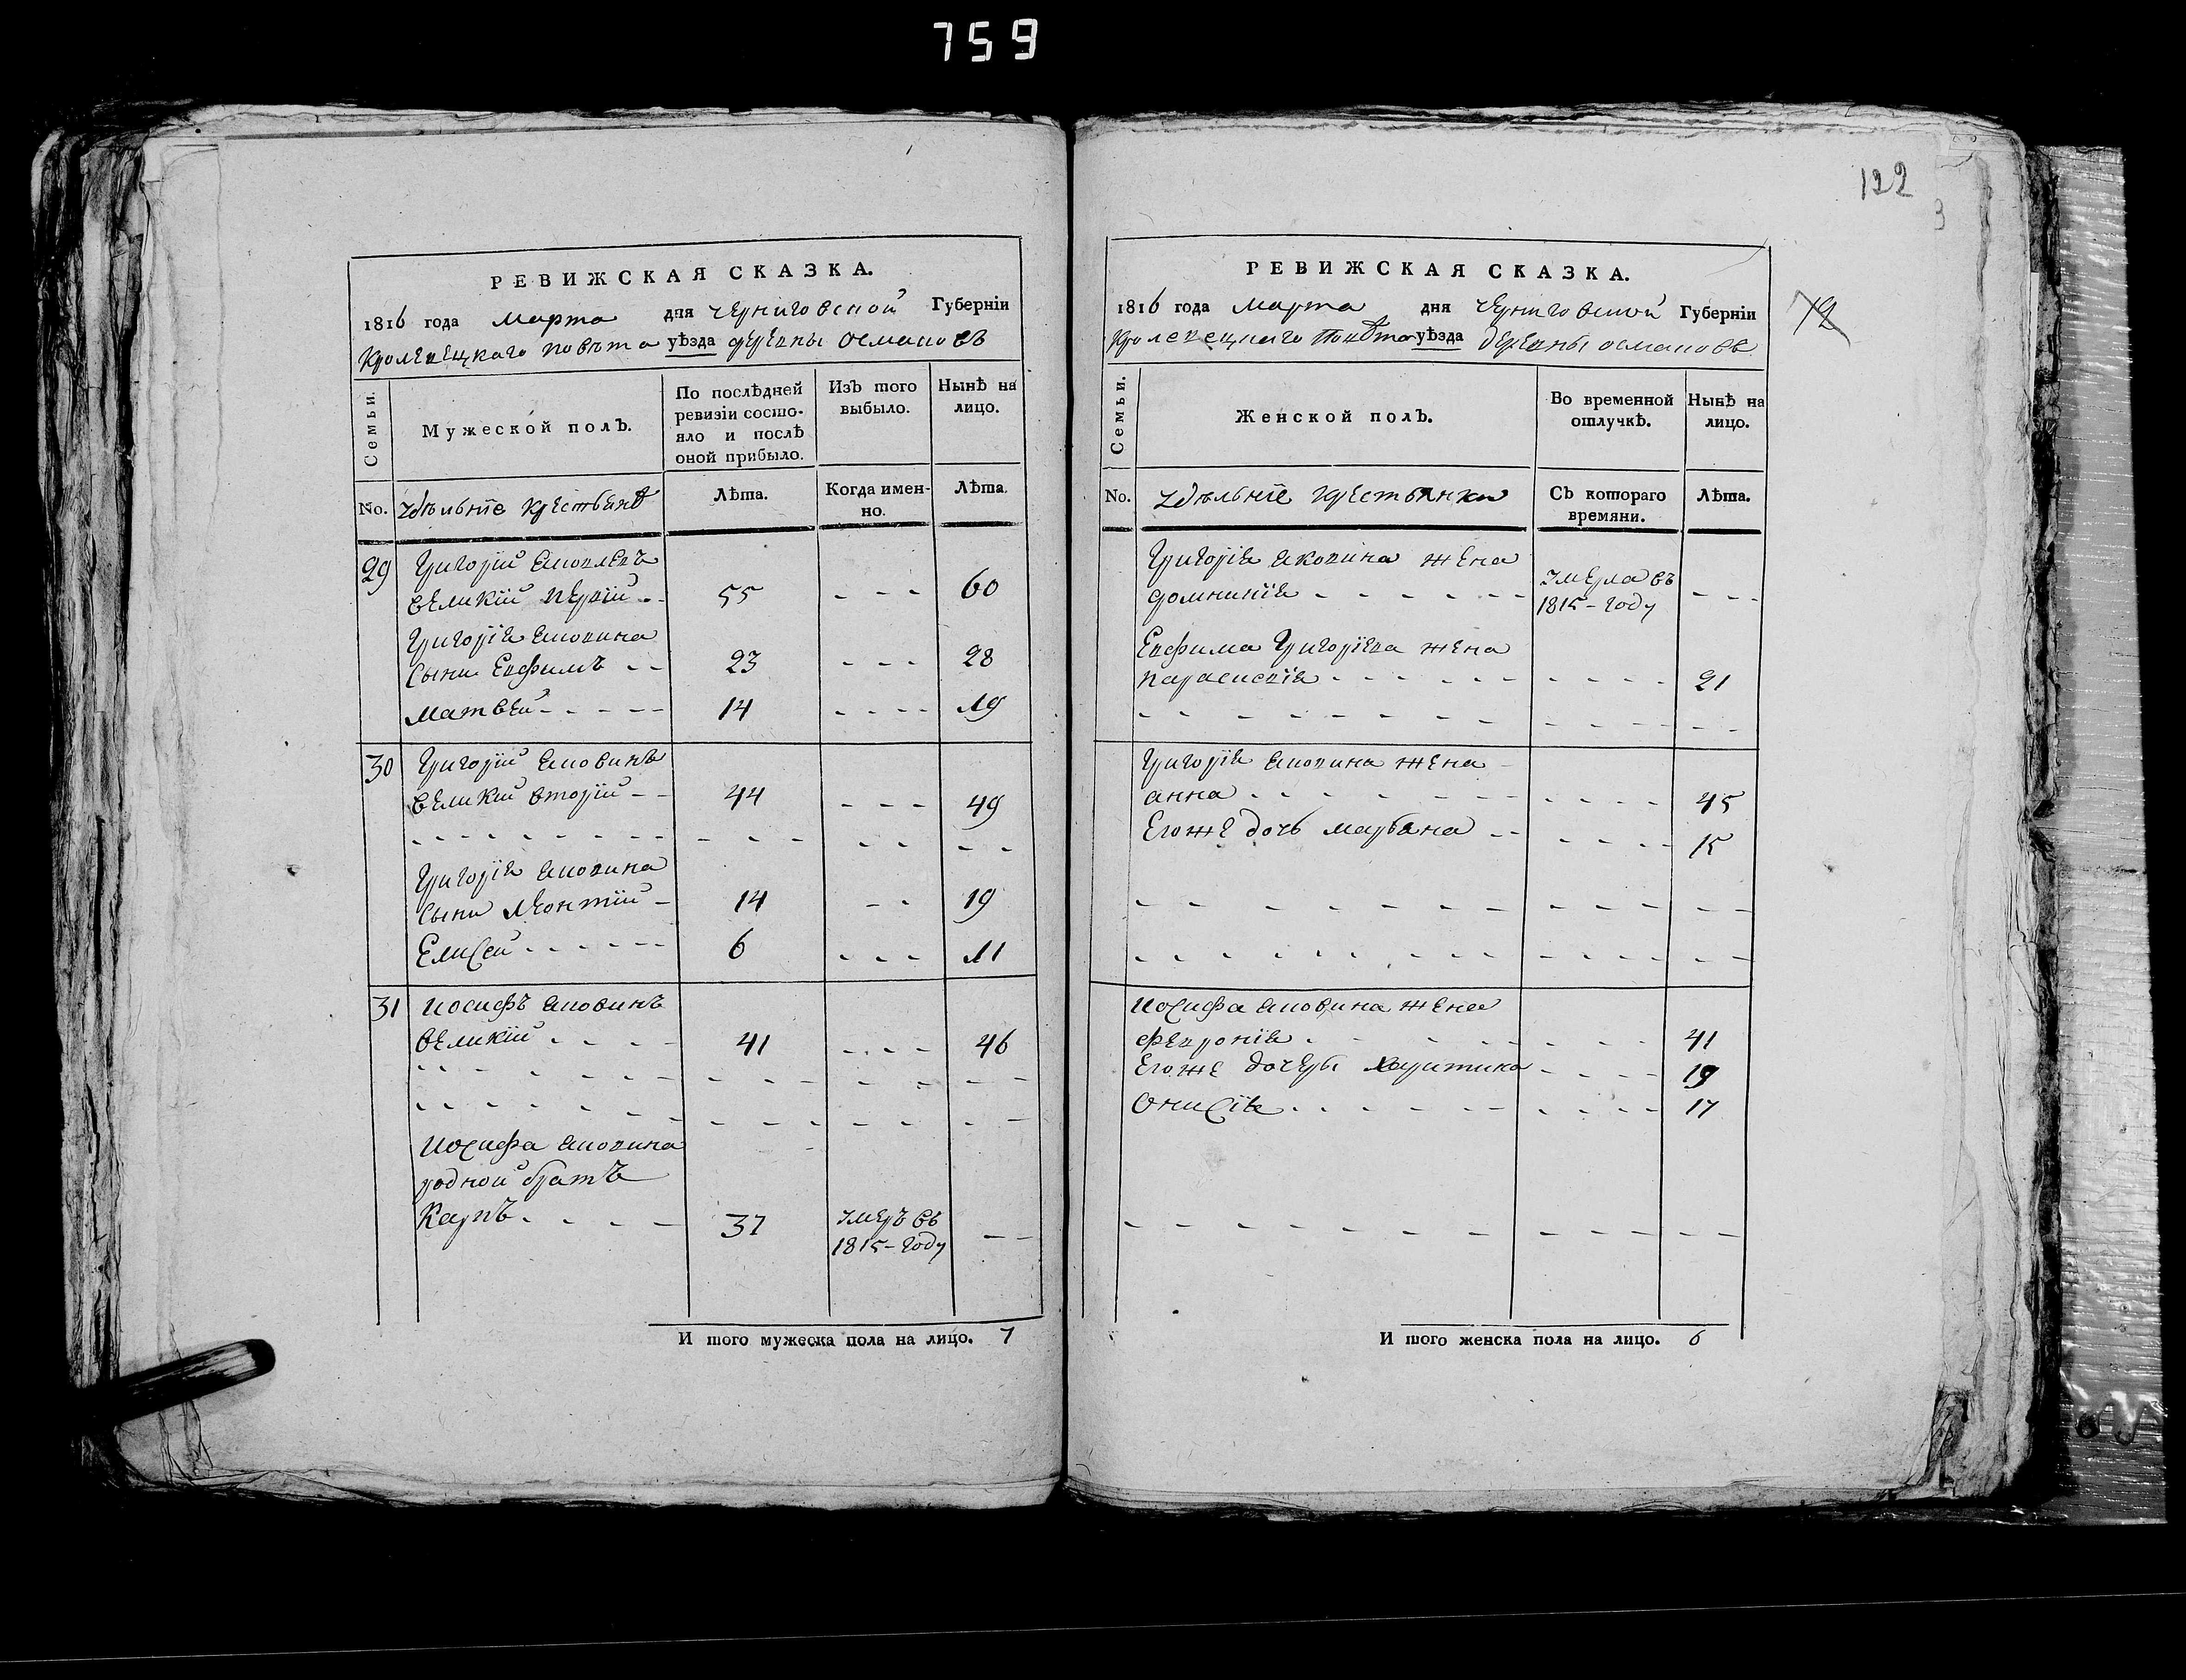 759
РЕВИЖСКАЯ СКАЗКА.
1816 года марта дня черниговской Губерніи
Кролевецкаго повѣта уѣзда деревны османовъ
Семьи.
Мужеской полъ.
По послѣдней ревизіи состо-
яло и послѣ
оной прибыло.
Изъ того
выбыло.
Нынѣ на
лицо.
No. удѣльніе крестьянѣ
Лѣта.
Когда имен-
но.
Лѣта.
29 Григорий
великій первій 55 - - - 60
Григорія яковина
сыни Евфимъ - - 23 - - - 28
Матвей - - - - - 14 - - - - 19
30 Григорій яковинъ
великій вторій - - 44 - - - 49
Григорія яковина
сыни Леонтій - 14 - - 19
Елисей - - - - - - 6 - - - 11
31 Иосифъ яковинъ
великій - - - - 41 - - - - 46
Иосифа яковина
родной братъ
Карпъ - - - - 37 умеръ въ
1815-году - -
И того мужеска пола на лицо. 7
122
3
РЕВИЖСКАЯ СКАЗКА.
1816 года марта дня черниговской Губерніи
Кролевецкаго повѣта уѣзда деревны османовъ
72
Семьи.
Женской полъ.
Во временной
отлучкѣ.
Нынѣ на
лицо.
No. удѣльніе крестьянки
Съ котораго
времяни.
Лѣта.
Григорія яковина жена
домникія - - - - - - умерла въ
1815-году - - -
Евфима Григоріева жена
параскевія - - - - - - - - - - 21
Григорія яковина жена
анна - - - - - - - - - - - 45
Егоже дочь марьяна - - - - - - 15
Иосифа яковина жена
февронія - - - - - - - - - 41
Егоже дочеры харитина - - - - 19
Онисія - - - - - - - - - - 17
И того женска пола на лицо. 6